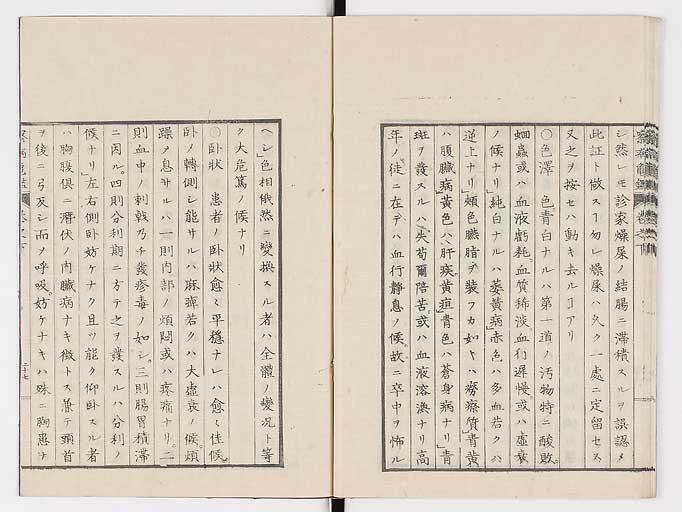 シ然レ𪜈診家燥屎ノ結腸ニ滞積スルヲ誤認メ
此証ト做スヿ勿レ燥屎ハ久ク一處ニ定留セス
又之ヲ按セハ動キ去ルヿアリ
〇色澤 色青白ナルハ第一道ノ汚物特ニ酸敗
蛔蟲或ハ血液虧耗血質稀淡血行遅慢或ハ虚衰
ノ候ナリ純白ナルハ萎黄病赤色ハ多血若クハ
逆上ナリ頰色臙脂ヲ装フカ如キハ癆瘵質青黄
ハ腹臓病黄色ハ肝疾黄疸青色ハ蒼身病ナリ青
斑ヲ發スルハ失荀爾陪苦或ハ血液溶渙ナリ高
年ノ徒ニ在テハ血行静息ノ候故ニ卒中ヲ怖ル
ヘシ色相俄然ニ變換スル者ハ全體ノ變況ト等
ク大危篤ノ候ナリ
〇臥状 患者ノ臥状愈ミ平穩ナレハ愈ミ佳候
臥ノ轉側シ能サルハ麻痺若クハ大虚衰ノ候煩
躁メ息サルハ一則内部ノ煩悶或ハ疼痛ナリ二
則血中ノ刺戟乃チ發疹毒ノ如シ三則腸胃積滞
ニ因ル四則分利期ニ方テ之ヲ發スルハ分利ノ
候ナリ左右側臥妨ケナク且ツ能ク仰臥スル者
ハ胸腹倶ニ潛伏ノ内臓病ナキ徴トス兼テ頭首
ヲ後ニ弓反シ而メ呼吸妨ケナキハ殊ニ胸患ナ
二十七